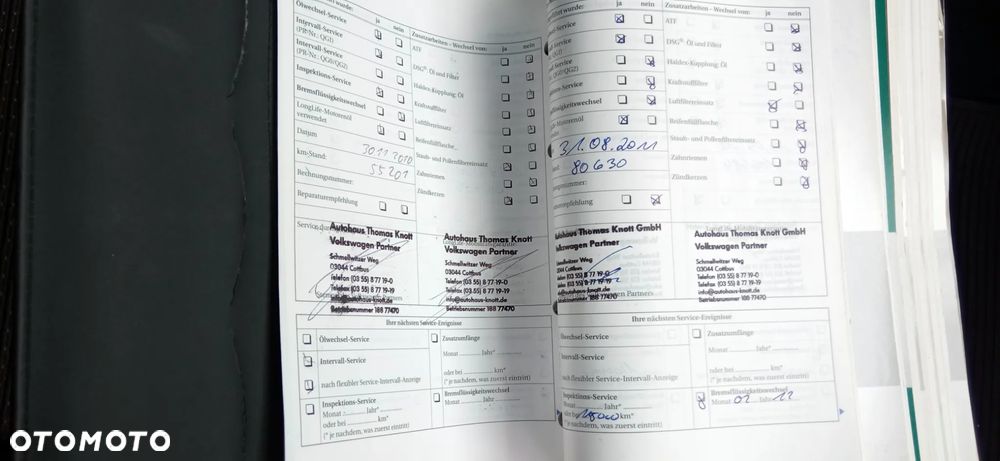 Ölwechsel-Service
ja
nein
Intervall-Service
(PR-Nr.: QG1)
Intervall-Service
(PR-Nr.: QG0/QG2)
Inspektions-Service
Bremsflüssigkeitswechsel
LongLife-Motorenöl
verwendet
Datum
30.11.2010
km-Stand:
55201
Rechnungsnummer:
Reparaturempfehlung
Zusatzarbeiten – Wechsel von:
ja
nein
ATF
DSG®: Öl und Filter
Haldex-Kupplung: Öl
Kraftstoffilter
Luftfiltereinsatz
Reifenfüllflasche
Staub- und Pollenfiltereinsatz
Zahnriemen
Zündkerzen
Autohaus Thomas Knott
Volkswagen Partner
Schmellwitzer Weg
03044 Cottbus
Telefon (03 55) 8 77 19-0
Telefax (03 55) 8 77 19-19
info@autohaus-knott.de
Betriebsnummer 188 77470
Autohaus Thomas Knott
Volkswagen Partner
Schmellwitzer Weg
03044 Cottbus
Telefon (03 55) 8 77 19-0
Telefax (03 55) 8 77 19-19
info@autohaus-knott.de
Betriebsnummer 188 77470
Ihre nächsten Service-Ereignisse
Ölwechsel-Service
Intervall-Service
nach flexibler Service-Intervall-Anzeige
Inspektions-Service
Monat Jahr*
oder bei km*
(* je nachdem, was zuerst eintritt)
Zusatzumfänge
Monat Jahr*
oder bei km*
(* je nachdem, was zuerst eintritt)
Bremsflüssigkeitswechsel
Monat Jahr
wurde:
ja
nein
Service
Service
QG0/QG2)
ons-Service
üssigkeitswechsel
Motorenöl
31.08.2011
80630
empfehlung
Zusatzarbeiten – Wechsel von:
ja
nein
ATF
DSG®: Öl und Filter
Haldex-Kupplung: Öl
Kraftstoffilter
Luftfiltereinsatz
Reifenfüllflasche
Staub- und Pollenfiltereinsatz
Zahnriemen
Zündkerzen
Autohaus Thomas Knott GmbH
Volkswagen Partner
Schmellwitzer Weg
Cottbus
(03 55) 8 77 19-0
(03 55) 8 77 19-19
@autohaus-knott.de
188 77470
Partners
Autohaus Thomas Knott GmbH
Volkswagen Partner
Schmellwitzer Weg
03044 Cottbus
Telefon (03 55) 8 77 19-0
Telefax (03 55) 8 77 19-19
info@autohaus-knott.de
Betriebsnummer 188 77470
Ihre nächsten Service-Ereignisse
Ölwechsel-Service
Intervall-Service
nach flexibler Service-Intervall-Anzeige
Inspektions-Service
Monat Jahr*
oder bei km*
(* je nachdem, was zuerst eintritt)
Zusatzumfänge
Monat Jahr*
oder bei km*
(* je nachdem, was zuerst eintritt)
Bremsflüssigkeitswechsel
Monat 02 Jahr 12
OTOMOTO